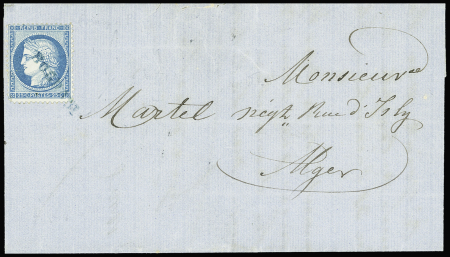 REPUB. FRANC.
25 C. POSTES 25 C.
Monsieur
Martel négt Rue d'Isly
Alger